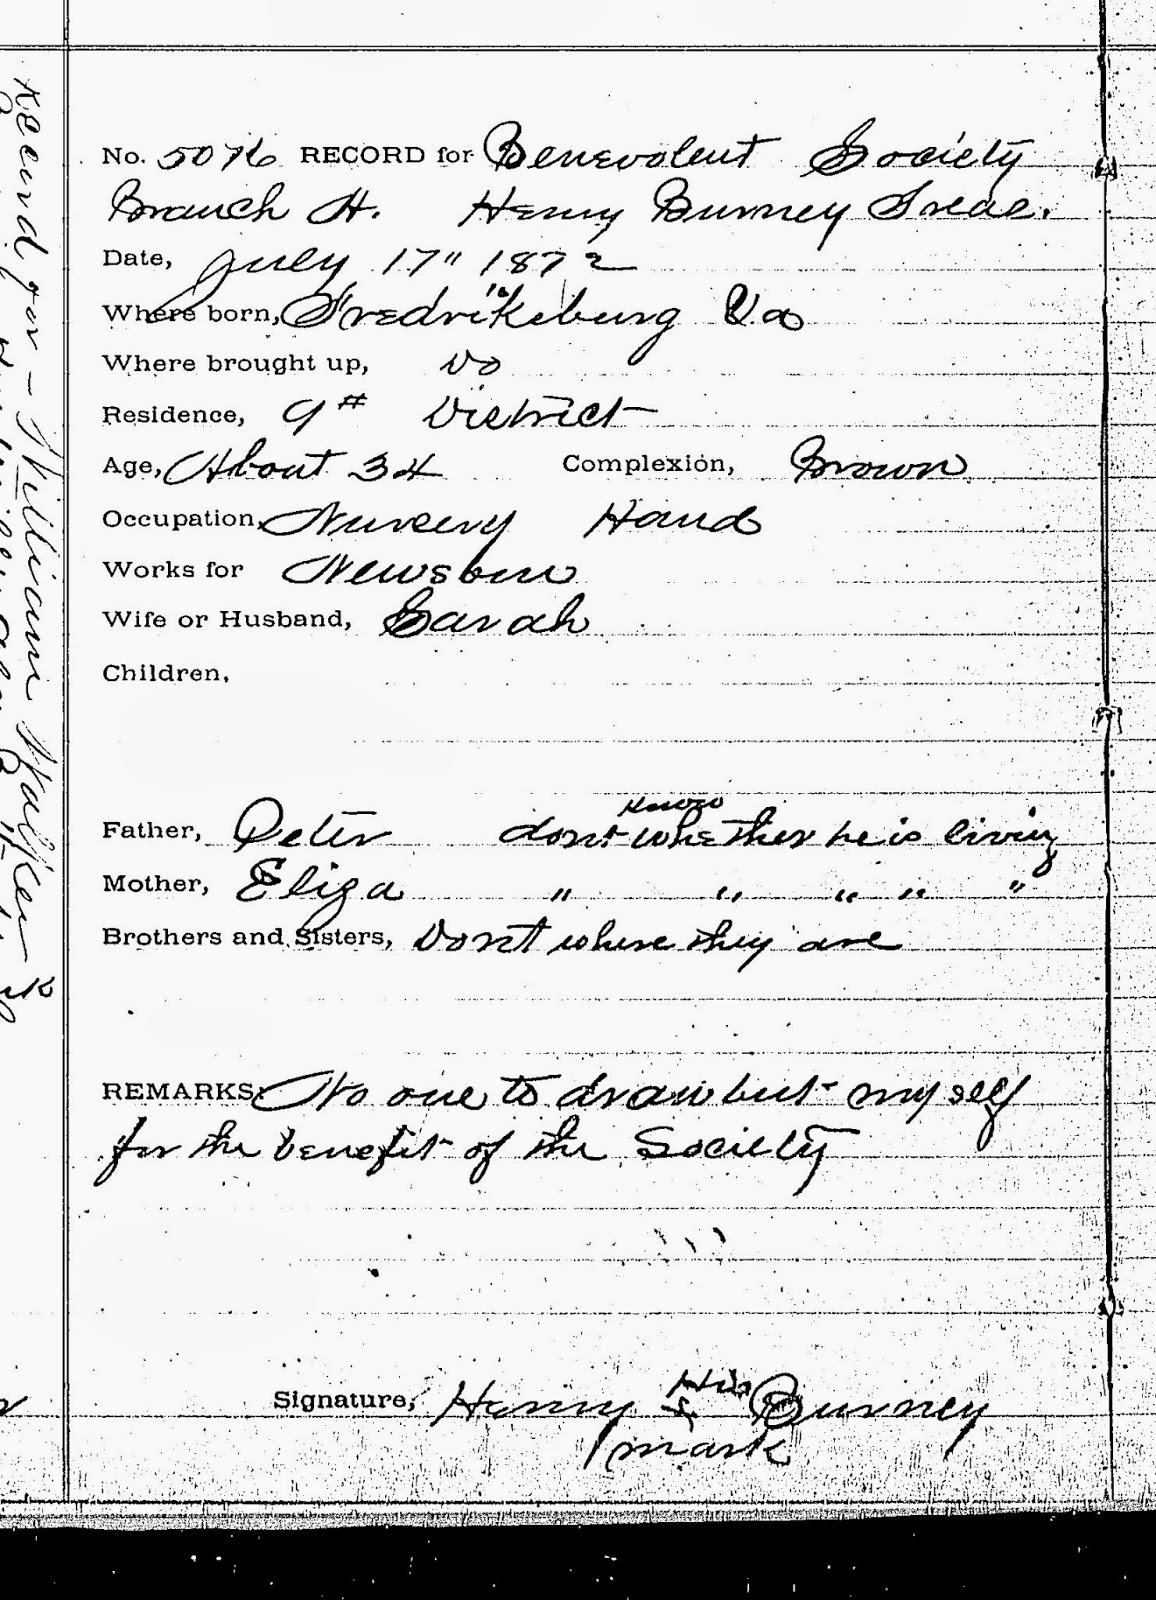 No. 5076 RECORD for Benevolent Society
Branch H. Henry Burney Treas.
Date, July 17" 1872
Where born, Fredrikeburg Va
Where brought up, Do
Residence, 9th District
Age, About 34 Complexion, Brown
Occupation, Nursery Hand
Works for Newsbom
Wife or Husband, Sarah
Children,
Father, Peter dont know whether he is living
Mother, Eliza " " " " "
Brothers and Sisters, Dont where they are
REMARKS: No one to draw but myself
for the benefit of the Society
Signature, Henry His x mark Burney
Record for William Walker